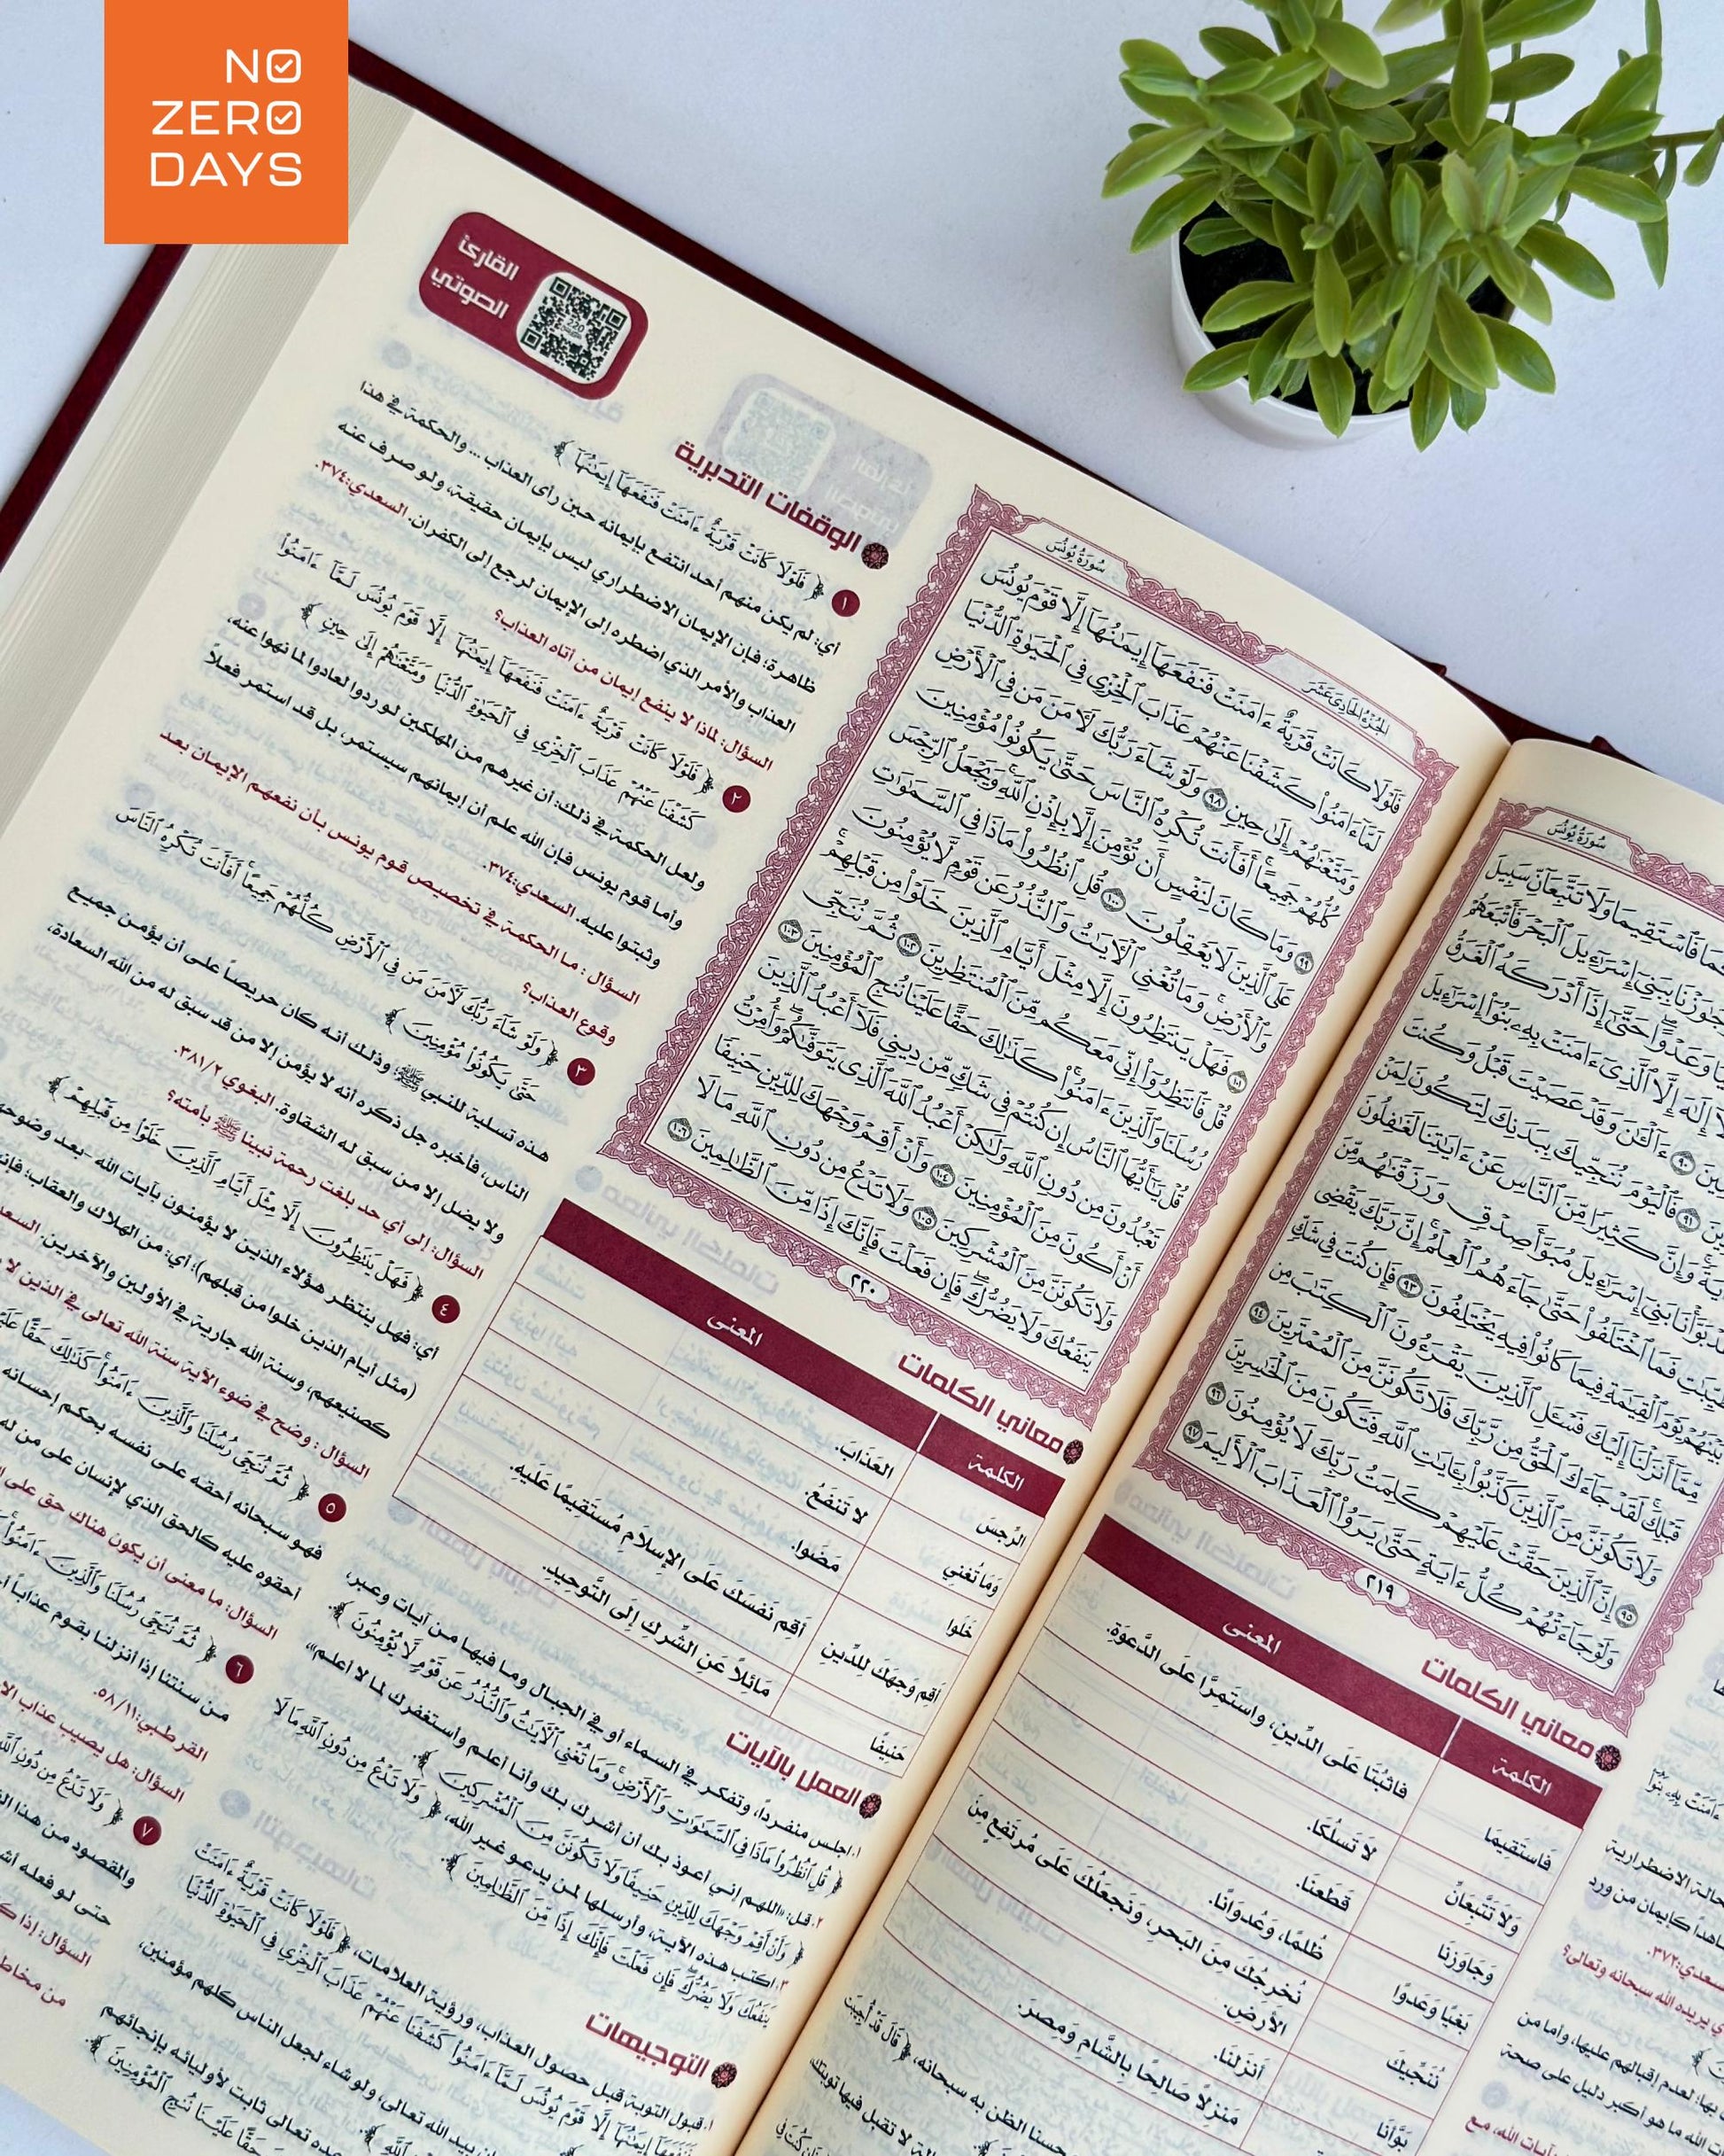 NO
ZERO
DAYS
القارئ
الصوتي
سُورَةُ يُونُسَ
الجُزْءُ الحَادِي عَشَرَ
فَلَوْلَا كَانَتْ قَرْيَةٌ ءَامَنَتْ فَنَفَعَهَآ إِيمَٰنُهَآ إِلَّا قَوْمَ يُونُسَ
لَمَّآ ءَامَنُوا۟ كَشَفْنَا عَنْهُمْ عَذَابَ ٱلْخِزْىِ فِى ٱلْحَيَوٰةِ ٱلدُّنْيَا
وَمَتَّعْنَٰهُمْ إِلَىٰ حِينٍ ٩٨ وَلَوْ شَآءَ رَبُّكَ لَءَامَنَ مَن فِى ٱلْأَرْضِ
كُلُّهُمْ جَمِيعًا ۚ أَفَأَنتَ تُكْرِهُ ٱلنَّاسَ حَتَّىٰ يَكُونُوا۟ مُؤْمِنِينَ
٩٩ وَمَا كَانَ لِنَفْسٍ أَن تُؤْمِنَ إِلَّا بِإِذْنِ ٱللَّهِ ۚ وَيَجْعَلُ ٱلرِّجْسَ
عَلَى ٱلَّذِينَ لَا يَعْقِلُونَ ١٠٠ قُلِ ٱنظُرُوا۟ مَاذَا فِى ٱلسَّمَٰوَٰتِ
وَٱلْأَرْضِ ۚ وَمَا تُغْنِى ٱلْءَايَٰتُ وَٱلنُّذُرُ عَن قَوْمٍ لَّا يُؤْمِنُونَ
١٠١ فَهَلْ يَنتَظِرُونَ إِلَّا مِثْلَ أَيَّامِ ٱلَّذِينَ خَلَوْا۟ مِن قَبْلِهِمْ ۚ
قُلْ فَٱنتَظِرُوٓا۟ إِنِّى مَعَكُم مِّنَ ٱلْمُنتَظِرِينَ ١٠٢ ثُمَّ نُنَجِّى
رُسُلَنَا وَٱلَّذِينَ ءَامَنُوا۟ ۚ كَذَٰلِكَ حَقًّا عَلَيْنَا نُنجِ ٱلْمُؤْمِنِينَ ١٠٣
قُلْ يَٰٓأَيُّهَا ٱلنَّاسُ إِن كُنتُمْ فِى شَكٍّ مِّن دِينِى فَلَآ أَعْبُدُ ٱلَّذِينَ
تَعْبُدُونَ مِن دُونِ ٱللَّهِ وَلَٰكِنْ أَعْبُدُ ٱللَّهَ ٱلَّذِى يَتَوَفَّىٰكُمْ ۖ وَأُمِرْتُ
أَنْ أَكُونَ مِنَ ٱلْمُؤْمِنِينَ ١٠٤ وَأَنْ أَقِمْ وَجْهَكَ لِلدِّينِ حَنِيفًا
وَلَا تَكُونَنَّ مِنَ ٱلْمُشْرِكِينَ ١٠٥ وَلَا تَدْعُ مِن دُونِ ٱللَّهِ مَا لَا
يَنفَعُكَ وَلَا يَضُرُّكَ ۖ فَإِن فَعَلْتَ فَإِنَّكَ إِذًا مِّنَ ٱلظَّٰلِمِينَ ١٠٦
٢٢٠
معاني الكلمات
الكلمة المعنى
الرِّجسَ العَذَابَ.
وَمَا تُغنِي لا تَنفَعُ.
خَلَوا مَضَوا.
أَقِم وَجهَكَ لِلدِّينِ أَقِم نَفسَكَ عَلَى الإِسلَامِ مُستَقِيمًا عَلَيهِ.
حَنِيفًا مَائِلاً عَنِ الشِّركِ إِلَى التَّوحِيدِ.
العمل بالآيات
١. اجلس منفرداً، وتفكر في السماء أو في الجبال وما فيها من آيات وعبر،
﴿ قُلِ ٱنظُرُوا۟ مَاذَا فِى ٱلسَّمَٰوَٰتِ وَٱلْأَرْضِ ۚ وَمَا تُغْنِى ٱلْءَايَٰتُ وَٱلنُّذُرُ عَن قَوْمٍ لَّا يُؤْمِنُونَ ﴾.
٢. قل: «اللهم إني أعوذ بك أن أشرك بك وأنا أعلم وأستغفرك لما لا أعلم»،
﴿ وَأَنْ أَقِمْ وَجْهَكَ لِلدِّينِ حَنِيفًا وَلَا تَكُونَنَّ مِنَ ٱلْمُشْرِكِينَ ﴾.
٣. اكتب هذه الآية، وأرسلها لمن يدعو غير الله، ﴿ وَلَا تَدْعُ مِن دُونِ ٱللَّهِ مَا لَا
يَنفَعُكَ وَلَا يَضُرُّكَ ۖ فَإِن فَعَلْتَ فَإِنَّكَ إِذًا مِّنَ ٱلظَّٰلِمِينَ ﴾.
التوجيهات
١. قبول التوبة قبل حصول العذاب، ورؤية العلامات، ﴿ فَلَوْلَا كَانَتْ قَرْيَةٌ ءَامَنَتْ
فَنَفَعَهَآ إِيمَٰنُهَآ إِلَّا قَوْمَ يُونُسَ لَمَّآ ءَامَنُوا۟ كَشَفْنَا عَنْهُمْ عَذَابَ ٱلْخِزْىِ فِى ٱلْحَيَوٰةِ ٱلدُّنْيَا
بيد الله تعالى، ولو شاء لجعل الناس كلهم مؤمنين،
تعالى ثابت لأوليائه بإنجائهم
حَقًّا عَلَيْنَا نُنجِ ٱلْمُؤْمِنِينَ ﴾.
الوقفات التدبرية
١ ﴿ فَلَوْلَا كَانَتْ قَرْيَةٌ ءَامَنَتْ فَنَفَعَهَآ إِيمَٰنُهَآ ﴾
أي: لم يكن منهم أحد انتفع بإيمانه حين رأى العذاب ... والحكمة في هذا
ظاهرة؛ فإن الإيمان الاضطراري ليس بإيمان حقيقة، ولو صرف عنه
العذاب والأمر الذي اضطره إلى الإيمان لرجع إلى الكفران. السعدي:٣٧٤.
السؤال: لماذا لا ينفع إيمان من أتاه العذاب؟
٢ ﴿ فَلَوْلَا كَانَتْ قَرْيَةٌ ءَامَنَتْ فَنَفَعَهَآ إِيمَٰنُهَآ إِلَّا قَوْمَ يُونُسَ لَمَّآ ءَامَنُوا۟
كَشَفْنَا عَنْهُمْ عَذَابَ ٱلْخِزْىِ فِى ٱلْحَيَوٰةِ ٱلدُّنْيَا وَمَتَّعْنَٰهُمْ إِلَىٰ حِينٍ ﴾
ولعل الحكمة في ذلك: أن غيرهم من المهلكين لو ردوا لعادوا لما نهوا عنه،
وأما قوم يونس فإن الله علم أن إيمانهم سيستمر، بل قد استمر فعلاً
وثبتوا عليه. السعدي:٣٧٤.
السؤال: ما الحكمة في تخصيص قوم يونس بأن نفعهم الإيمان بعد
وقوع العذاب؟
٣ ﴿ وَلَوْ شَآءَ رَبُّكَ لَءَامَنَ مَن فِى ٱلْأَرْضِ كُلُّهُمْ جَمِيعًا ۚ أَفَأَنتَ تُكْرِهُ ٱلنَّاسَ
حَتَّىٰ يَكُونُوا۟ مُؤْمِنِينَ ﴾
هذه تسلية للنبي ﷺ؛ وذلك أنه كان حريصاً على أن يؤمن جميع
الناس، فأخبره جل ذكره أنه لا يؤمن إلا من قد سبق له من الله السعادة،
ولا يضل إلا من سبق له الشقاوة. البغوي ٣٨١/٢.
السؤال: إلى أي حد بلغت رحمة نبينا ﷺ بأمته؟
٤ ﴿ فَهَلْ يَنتَظِرُونَ إِلَّا مِثْلَ أَيَّامِ ٱلَّذِينَ خَلَوْا۟ مِن قَبْلِهِمْ ﴾
أي: فهل ينتظر هؤلاء الذين لا يؤمنون بآيات الله -بعد وضوحها-
(مثل أيام الذين خلوا من قبلهم)؛ أي: من الهلاك والعقاب؛ فإنهم
كصنيعهم، وسنة الله جارية في الأولين والآخرين.
السؤال: وضح في ضوء الآية سنة الله تعالى في الذين لا
٥ ﴿ ثُمَّ نُنَجِّى رُسُلَنَا وَٱلَّذِينَ ءَامَنُوا۟ ۚ كَذَٰلِكَ حَقًّا
فهو سبحانه أحقه على نفسه بحكم إحسانه
أحقوه عليه كالحق الذي لإنسان على من له
السؤال: ما معنى أن يكون هناك حق على
٦ ﴿ ثُمَّ نُنَجِّى رُسُلَنَا وَٱلَّذِينَ ءَامَنُوا۟
من سنتنا إذا أنزلنا بقوم عذاباً
القرطبي:٥٨/١١.
السؤال: هل يصيب عذاب
٧ ﴿ وَلَا تَدْعُ مِن دُونِ ٱللَّهِ
والمقصود من هذا
حتى لو فعله
السؤال: إذا
من مخاط
سُورَةُ يُونُسَ
فَٱسْتَقِيمَا وَلَا تَتَّبِعَآنِّ سَبِيلَ
بِبَنِىٓ إِسْرَٰٓءِيلَ ٱلْبَحْرَ فَأَتْبَعَهُمْ
وَعَدْوًا ۖ حَتَّىٰٓ إِذَآ أَدْرَكَهُ ٱلْغَرَقُ
إِلَٰهَ إِلَّا ٱلَّذِىٓ ءَامَنَتْ بِهِۦ بَنُوٓا۟ إِسْرَٰٓءِيلَ
٩٠ ءَآلْـَٰٔنَ وَقَدْ عَصَيْتَ قَبْلُ وَكُنتَ
٩١ فَٱلْيَوْمَ نُنَجِّيكَ بِبَدَنِكَ لِتَكُونَ لِمَنْ
وَإِنَّ كَثِيرًا مِّنَ ٱلنَّاسِ عَنْ ءَايَٰتِنَا لَغَٰفِلُونَ
بَوَّأْنَا بَنِىٓ إِسْرَٰٓءِيلَ مُبَوَّأَ صِدْقٍ وَرَزَقْنَٰهُم مِّنَ
فَمَا ٱخْتَلَفُوا۟ حَتَّىٰ جَآءَهُمُ ٱلْعِلْمُ ۚ إِنَّ رَبَّكَ يَقْضِى
بَيْنَهُمْ يَوْمَ ٱلْقِيَٰمَةِ فِيمَا كَانُوا۟ فِيهِ يَخْتَلِفُونَ ٩٣ فَإِن كُنتَ فِى شَكٍّ
مِّمَّآ أَنزَلْنَآ إِلَيْكَ فَسْـَٔلِ ٱلَّذِينَ يَقْرَءُونَ ٱلْكِتَٰبَ مِن
قَبْلِكَ ۚ لَقَدْ جَآءَكَ ٱلْحَقُّ مِن رَّبِّكَ فَلَا تَكُونَنَّ مِنَ ٱلْمُمْتَرِينَ ٩٤
وَلَا تَكُونَنَّ مِنَ ٱلَّذِينَ كَذَّبُوا۟ بِـَٔايَٰتِ ٱللَّهِ فَتَكُونَ مِنَ ٱلْخَٰسِرِينَ
٩٥ إِنَّ ٱلَّذِينَ حَقَّتْ عَلَيْهِمْ كَلِمَتُ رَبِّكَ لَا يُؤْمِنُونَ ٩٦
وَلَوْ جَآءَتْهُمْ كُلُّ ءَايَةٍ حَتَّىٰ يَرَوُا۟ ٱلْعَذَابَ ٱلْأَلِيمَ ٩٧
٢١٩
معاني الكلمات
الكلمة المعنى
فَاستَقِيمَا فَاثبُتَا عَلَى الدِّينِ، وَاستَمِرَّا عَلَى الدَّعوَةِ.
وَلَا تَتَّبِعَانِّ لَا تَسلُكَا.
وَجَاوَزنَا قَطَعنَا.
بَغيًا وَعَدوًا ظُلمًا، وَعُدوَانًا.
نُنَجِّيكَ نُخرِجُكَ مِنَ البَحرِ، وَنَجعَلُكَ عَلَى مُرتَفِعٍ مِنَ
الأَرضِ.
بَوَّأنَا أَنزَلنَا.
مَنزِلاً صَالحًا بِالشَّامِ وَمِصرَ.